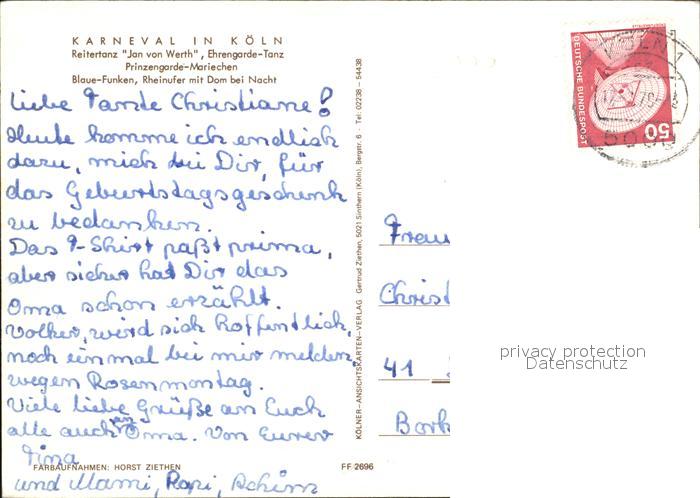 KARNEVAL IN KÖLN
Reitertanz "Jan von Werth", Ehrengarde-Tanz
Prinzengarde-Mariechen
Blaue-Funken, Rheinufer mit Dom bei Nacht
Liebe Tante Christiane!
Heute komme ich endlich
dazu, mich bei Dir, für
das Geburtstagsgeschenk
zu bedanken.
Das T-Shirt paßt prima,
aber sicher hat Dir das
Oma schon erzählt.
Volker, wird sich hoffentlich,
noch einmal bei mir melden,
wegen Rosenmontag.
Viele liebe Grüße an Euch
alle auch an Oma. Von Eurer
Tina
und Mami, Papi, Achim
FARBAUFNAHMEN: HORST ZIETHEN
FF 2696
KÖLNER-ANSICHTSKARTEN-VERLAG Gertrud Ziethen, 5021 Sinthern (Köln), Bergstr. 6 · Tel. 02238 – 54438
DEUTSCHE BUNDESPOST
50
KÖLN 1
5000
Frau
Christ
41
Bork
privacy protection
Datenschutz